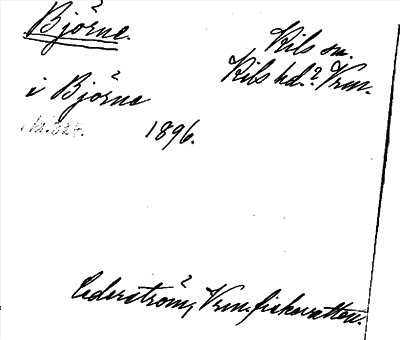 Björne.
Kils sn.
Kils hd.? Vrm.
i Björne
1896.
Cederström, Vrm. fiskevatten.